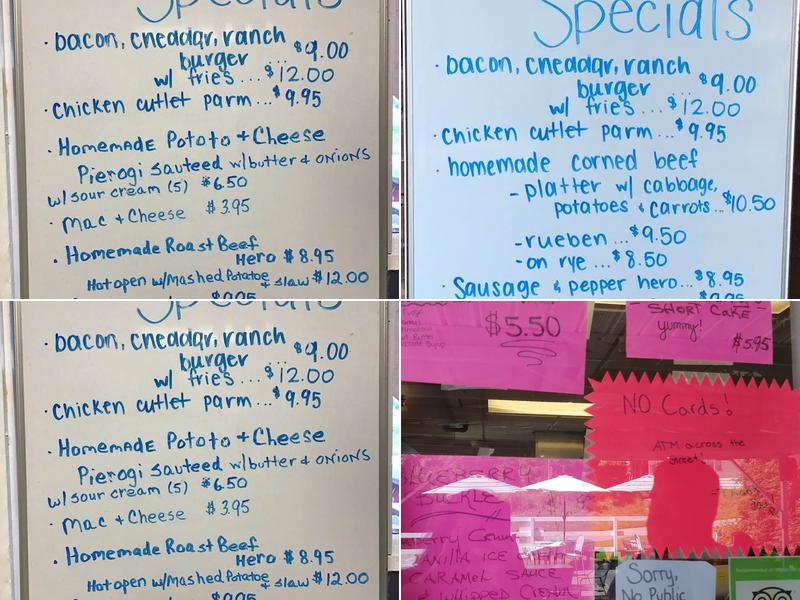 Specials
· bacon, cheddar, ranch
burger $9.00
w/ fries... $12.00
· Chicken cutlet parm... $9.95
· Homemade Pototo + Cheese
Pierogi sauteed w/butter & onions
w/ sour cream (5) $6.50
· Mac + Cheese $3.95
· Homemade Roast Beef
Hero $8.95
Hot open w/Mashed Potatoe & slaw $12.00
Specials
· bacon, cheddar, ranch
burger ... $9.00
w/ fries... $12.00
· Chicken cutlet parm... $9.95
· homemade corned beef
- platter w/ cabbage,
potatoes & carrots... $10.50
- rueben... $9.50
- on rye... $8.50
· Sausage & pepper hero... $8.95
Specials
· bacon, cheddar, ranch
burger $9.00
w/ fries... $12.00
· Chicken cutlet parm... $9.95
· Homemade Pototo + Cheese
Pierogi sauteed w/butter & onions
w/ sour cream (5) $6.50
· Mac + Cheese $3.95
· Homemade Roast Beef
Hero $8.95
Hot open w/Mashed Potatoe & slaw $12.00
$5.50
SHORT CAKE
yummy!
$5.95
NO Cards!
ATM across the
street!
BLUEBERRY
BUCKLE
VANILLA ICE
CARAMEL SAUCE
& WHIPPED CREAM
Sorry,
No Public